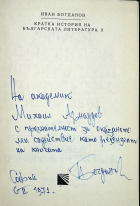 ИВАН БОГДАНОВ
КРАТКА ИСТОРИЯ НА
БЪЛГАРСКАТА ЛИТЕРАТУРА, 2
На академик
Михаил Арнаудов
с признателност за
ми съдействие като рецензент
на книгата
София
1970.